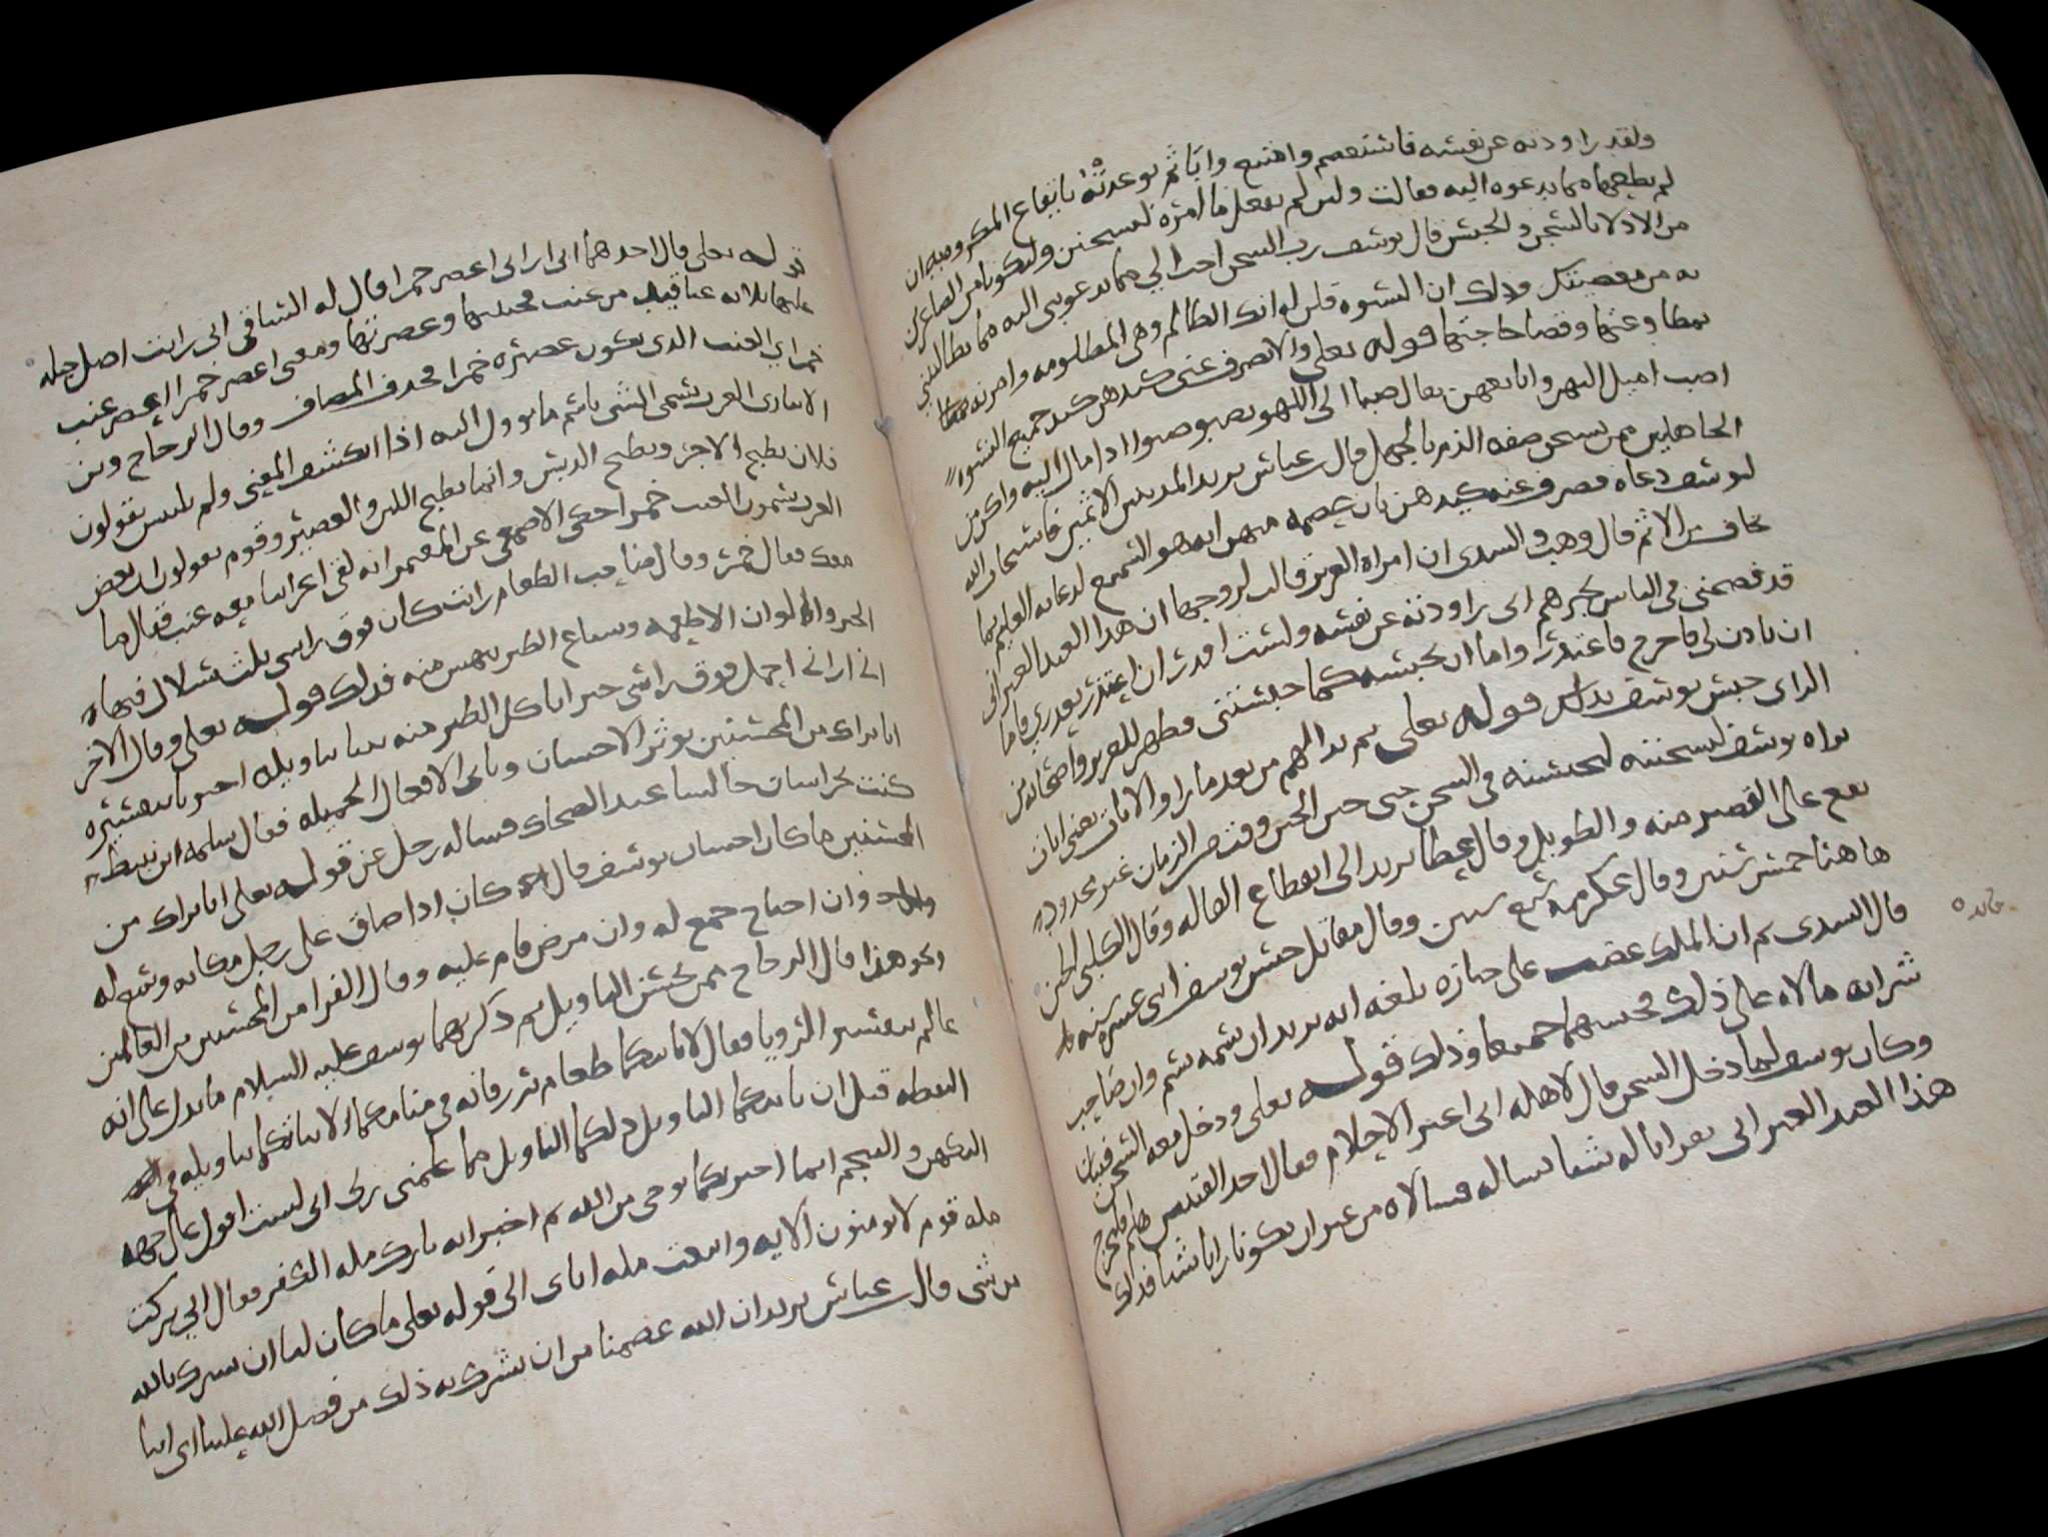 ولقد راودته عن نفسه فاستعصم وامتنع وابا ثم توعدته بايقاع المكروه به ان
لم يطعها مما يدعوه اليه فقالت ولئن لم يفعل ما امره ليسجنن وليكونا من الصاغرين
من الاذلا بالسجن والحبس قال يوسف رب السجن احب الي مما يدعونني اليه مما يطالبنني
به من معصيتك وذلك ان النسوه قلن له انك الظالم وهي المظلومه وامرنه
بمطاوعتها وقضا حاجتها قوله تعالى والا تصرف عني كيدهن كيد جميع النسوه
اصب اميل اليهن واتابعهن يقال صبا الى اللهو يصبو صبوا اذا مال اليه واكن من
الجاهلين ممن يستحق صفه الذم بالجهل قال عباس يريد المذنبين الاثمين فاستجاب الله
ليوسف دعاه فصرف عنه كيدهن بان عصمه منهن انه هو السميع لدعائه العليم بما
خاف من الاثم قال وهب والسدي ان امراه العزيز قالت لزوجها ان هذا العبد العبراني
قد فضحني في الناس يخبرهم اني راودته عن نفسه ولست اقدر ان اعتذر بعذري فاما
ان تاذن لي فاخرج فاعتذر واما ان تحبسه كما حبستني فظهر للعزيز واصحابه من
الراي حبس يوسف فذلك قوله تعالى ثم بدا لهم من بعد ما راوا الايات يعني ايات
براه يوسف ليسجننه ليحبسنه في السجن حتى حين الحين وقت من الزمان غير محدود
يقع على القصير منه والطويل وقال عطا يريد الى انقطاع القاله وقال الكلبي الحين
هاهنا خمس سنين وقال عكرمه تسع سنين وقال مقاتل حبس يوسف اثني عشره سنه
قال السدي ثم ان الملك غضب على خبازه بلغه انه يريد ان يسمه بسم وان صاحب
شرابه مالاه على ذلك فحبسهما جميعا وذلك قوله تعالى ودخل معه السجن فتيان
وكان يوسف لما دخل السجن قال لاهله اني اعبر الاحلام فقال احد الفتيين هلم فلنجرب
هذا العبد العبراني نعرايا له شيا نساله فسالاه من غير ان يكونا رايا شيا فذلك
خالده
قوله تعالى قال احدهما اني اراني اعصر خمرا قال له الساقي اني رايت اصل حبله
عليها ثلاثه عناقيد من عنب فجنيتها وعصرتها ومعنى اعصر خمرا اعصر عنب
خمر اي العنب الذي يكون عصيره خمرا فحذف المضاف وقال الزجاج وبن
الانباري العرب تسمي الشي باسم ما يوول اليه اذا انكشف المعنى ولم يلبس يقولون
فلان يطبخ الاجر ويطبخ الدبس وانما يطبخ اللبن والعصير وقوم يقولون ان بعض
العرب يسمون العنب خمرا حكى الاصمعي عن المعتمر انه لقي اعرابيا معه عنب فقال ما
معك فقال خمر وقال صاحب الطعام رايت كان فوق راسي ثلث سلال فيها
الخبز والوان الاطعمه وسباع الطير ينهس منه فذلك قوله تعالى وقال الاخر
اني اراني احمل فوق راسي خبرا تاكل الطير منه نبينا بتاويله اخبرنا بتفسيره
انا نراك من المحسنين توثر الاحسان وتاتي الافعال الجميله فقال سلمه ابن نبيط
كنت بخراسان جالسا عند الضحاك فساله رجل عن قوله تعالى انا نراك من
المحسنين ما كان احسان يوسف قال كان اذا ضاق على رجل مكانه وسع له
وان احتاج جمع له وان مرض قام عليه وقال الفرا من المحسنين من العالمين
ونحو هذا قال الزجاج ممن يحسن التاويل ثم ذكر لهما يوسف عليه السلام ما يدل على انه
عالم بتفسير الرويا فقال لا ياتيكما طعام ترزقانه في منامكما الا نباتكما بتاويله في
اليقظه قبل ان ياتيكما التاويل ذلكما التاويل مما علمني ربي اني لست اقول على جهه
التكهن والتنجم انما اخبركما بوحي من الله ثم اخبر انه تارك مله الكفر فقال اني تركت
مله قوم لا يومنون الايه واتبعت مله اباي الى قوله تعالى ما كان لنا ان نشرك بالله
من شي قال عباس يريد ان الله عصمنا من ان نشرك به ذلك من فضل الله علينا اي